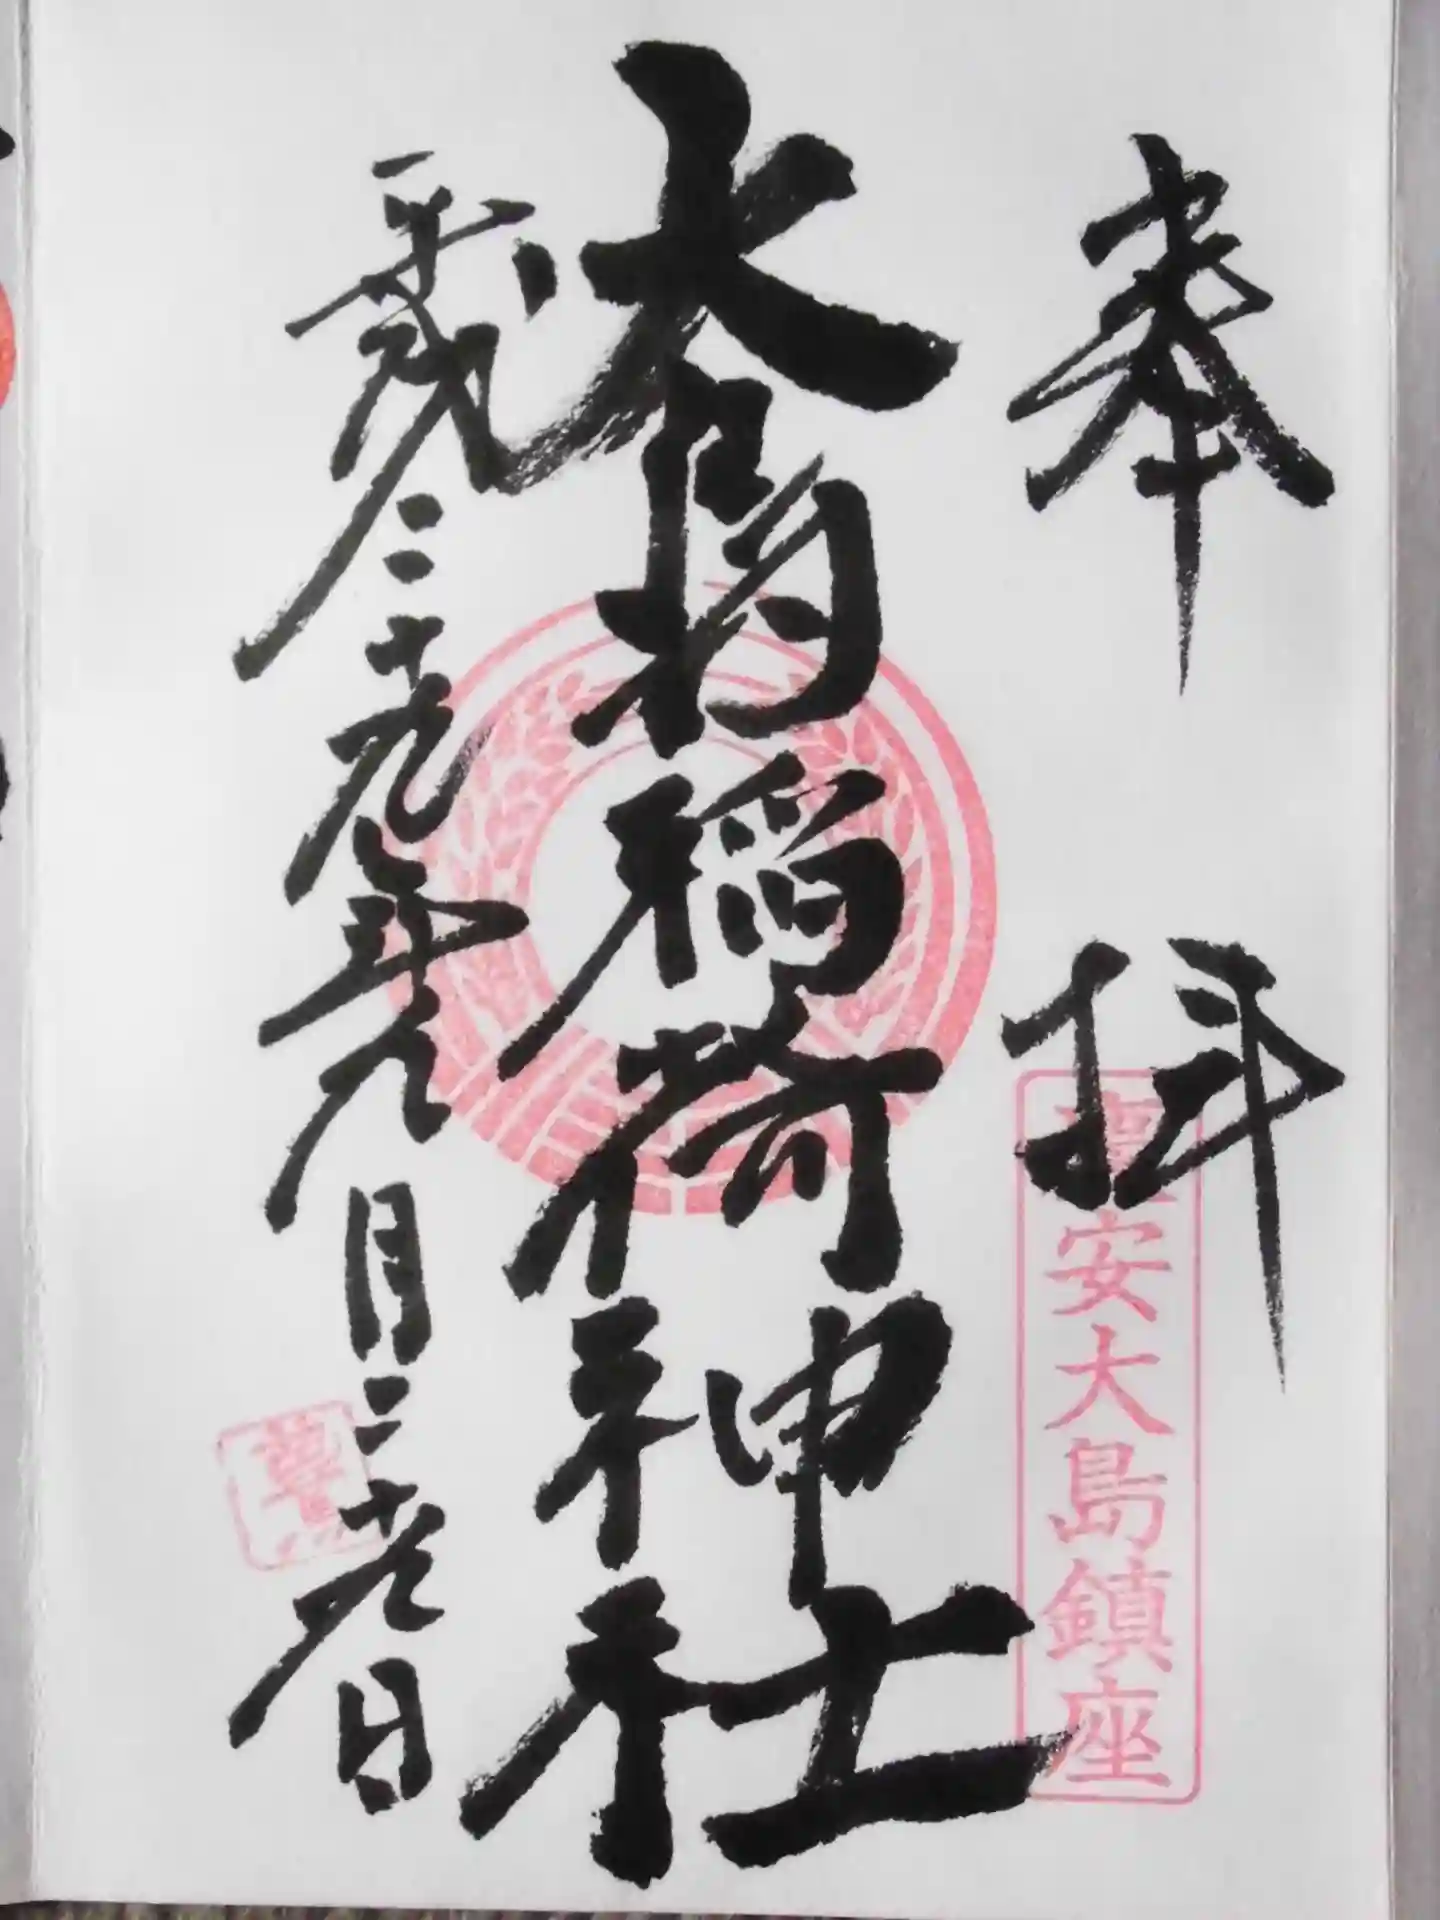 奉拝
慶安大島鎮座
大島稲荷神社
平成二十九年九月二十九日